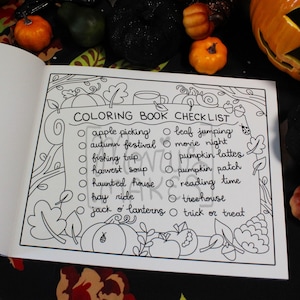 COLORING BOOK CHECKLIST
apple picking
autumn festival
fishing trip
harvest soup
haunted house
hay ride
jack o' lanterns
leaf jumping
movie night
pumpkin lattes
pumpkin patch
reading time
treehouse
trick or treat